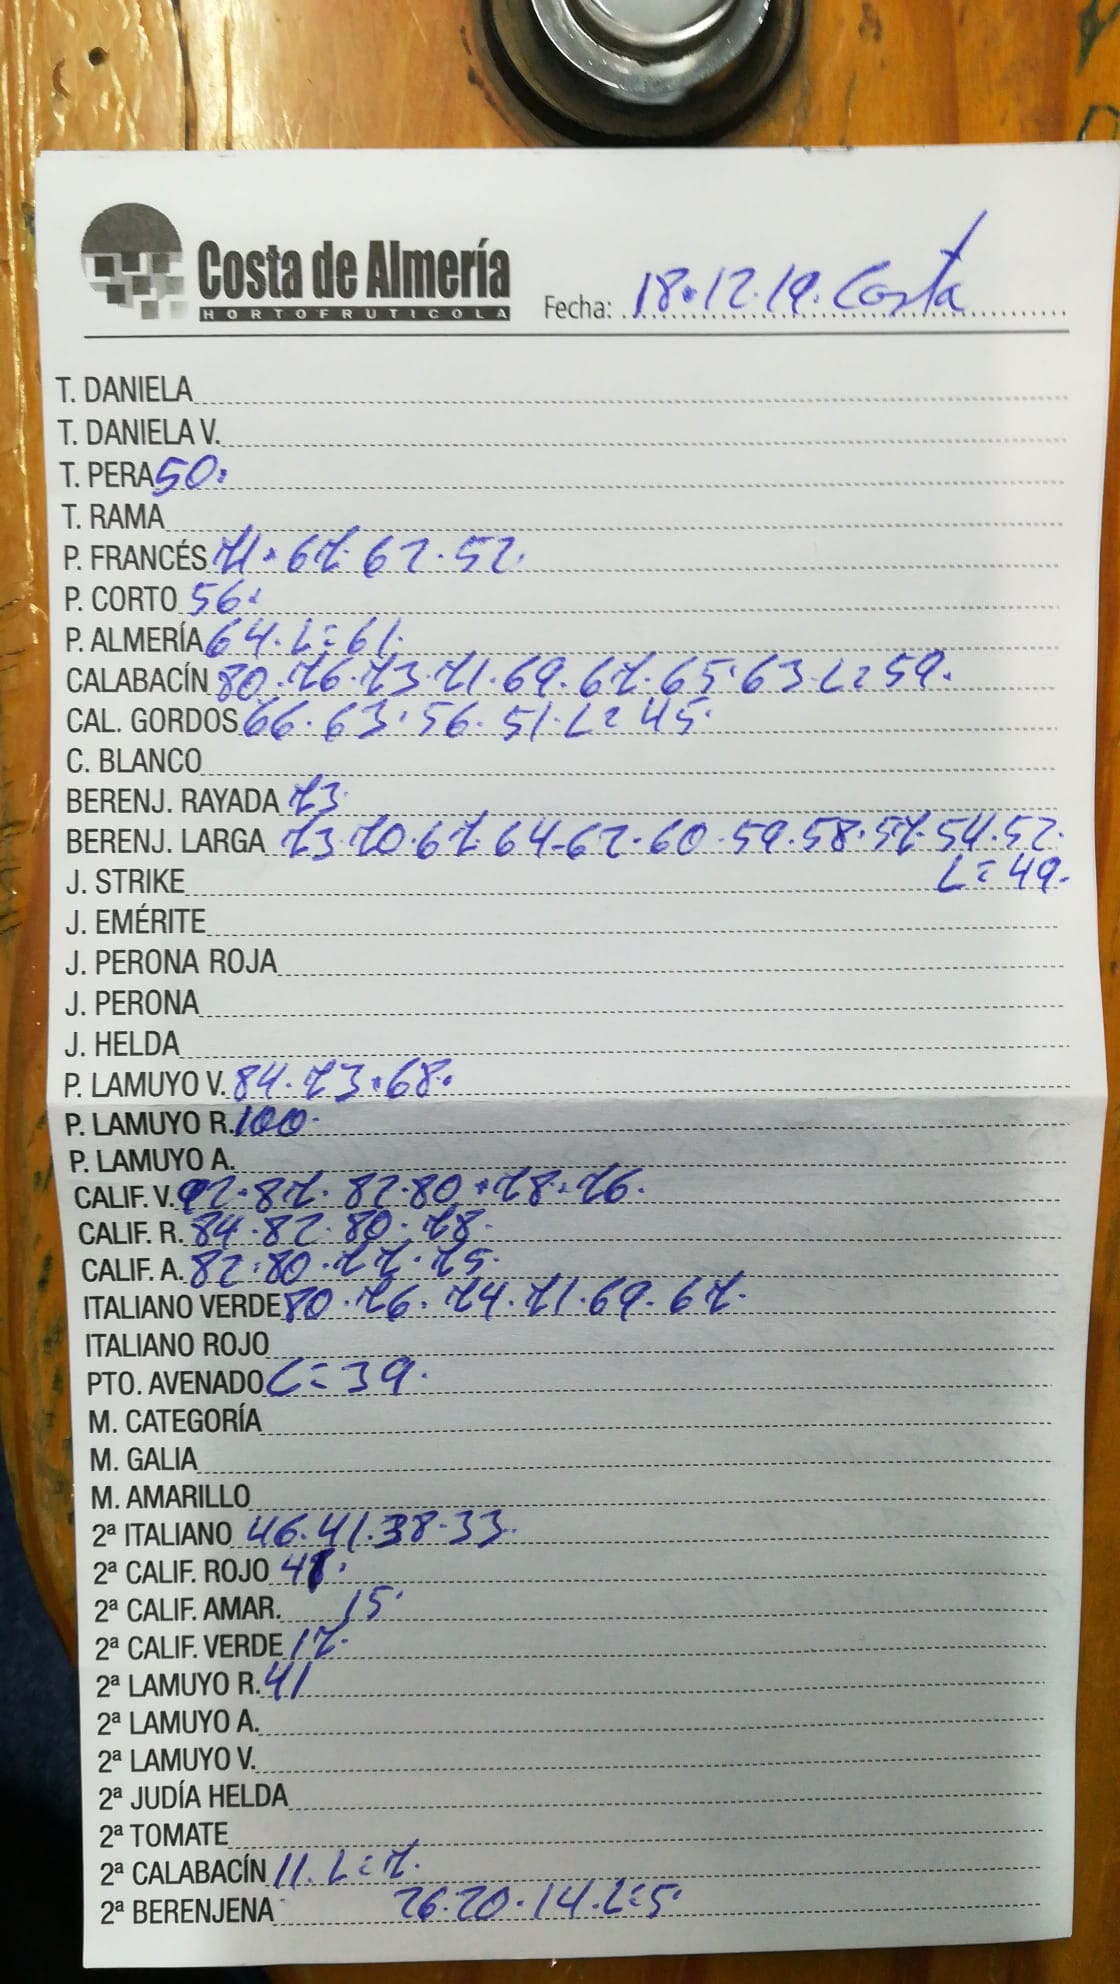 Costa de Almería
HORTOFRUTICOLA
Fecha: 18.12.19. Costa
T. DANIELA
T. DANIELA V.
T. PERA 50.
T. RAMA
P. FRANCÉS 71. 67. 62. 52.
P. CORTO 56.
P. ALMERÍA 64. L=61.
CALABACÍN 80. 76. 73. 71. 69. 67. 65. 63. L=59.
CAL. GORDOS 66. 63. 56. 51. L=45.
C. BLANCO
BERENJ. RAYADA 73.
BERENJ. LARGA 73. 70. 67. 64-62. 60. 59. 58. 57. 54. 52.
L=49.
J. STRIKE
J. EMÉRITE
J. PERONA ROJA
J. PERONA
J. HELDA
P. LAMUYO V. 84. 73. 68.
P. LAMUYO R. 100.
P. LAMUYO A.
CALIF. V. 92. 87. 82. 80. 78. 76.
CALIF. R. 84. 82. 80. 78.
CALIF. A. 82. 80. 77. 75.
ITALIANO VERDE 80. 76. 74. 71. 69. 67.
ITALIANO ROJO
PTO. AVENADO L=39.
M. CATEGORÍA
M. GALIA
M. AMARILLO
2ª ITALIANO 46. 41. 38. 33.
2ª CALIF. ROJO
2ª CALIF. AMAR. 15.
2ª CALIF. VERDE 17.
2ª LAMUYO R. 41
2ª LAMUYO A.
2ª LAMUYO V.
2ª JUDÍA HELDA
2ª TOMATE
2ª CALABACÍN 11. L=7.
2ª BERENJENA 26. 20. 14. L=5.